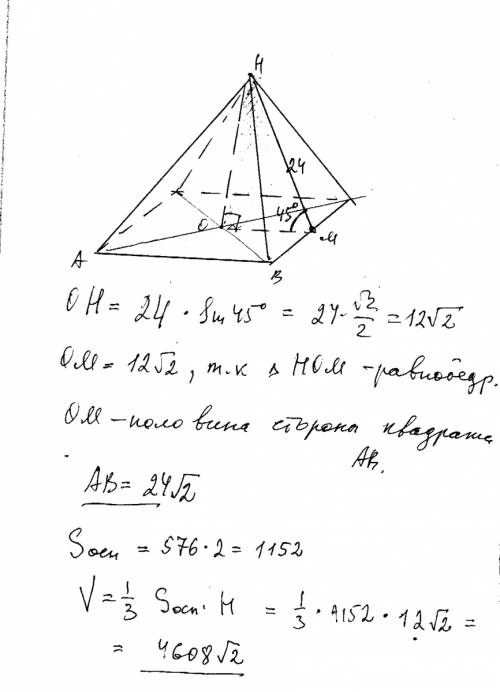 H
24
45°
O
M
A
B
OH = 24 · sin 45° = 24 · √2/2 = 12√2
OM = 12√2, т.к Δ HOM - равнобедр.
OM - половина стороны квадрата
AB.
AB = 24√2
Sосн = 576 · 2 = 1152
V = 1/3 Sосн · H = 1/3 · 1152 · 12√2 =
= 4608√2